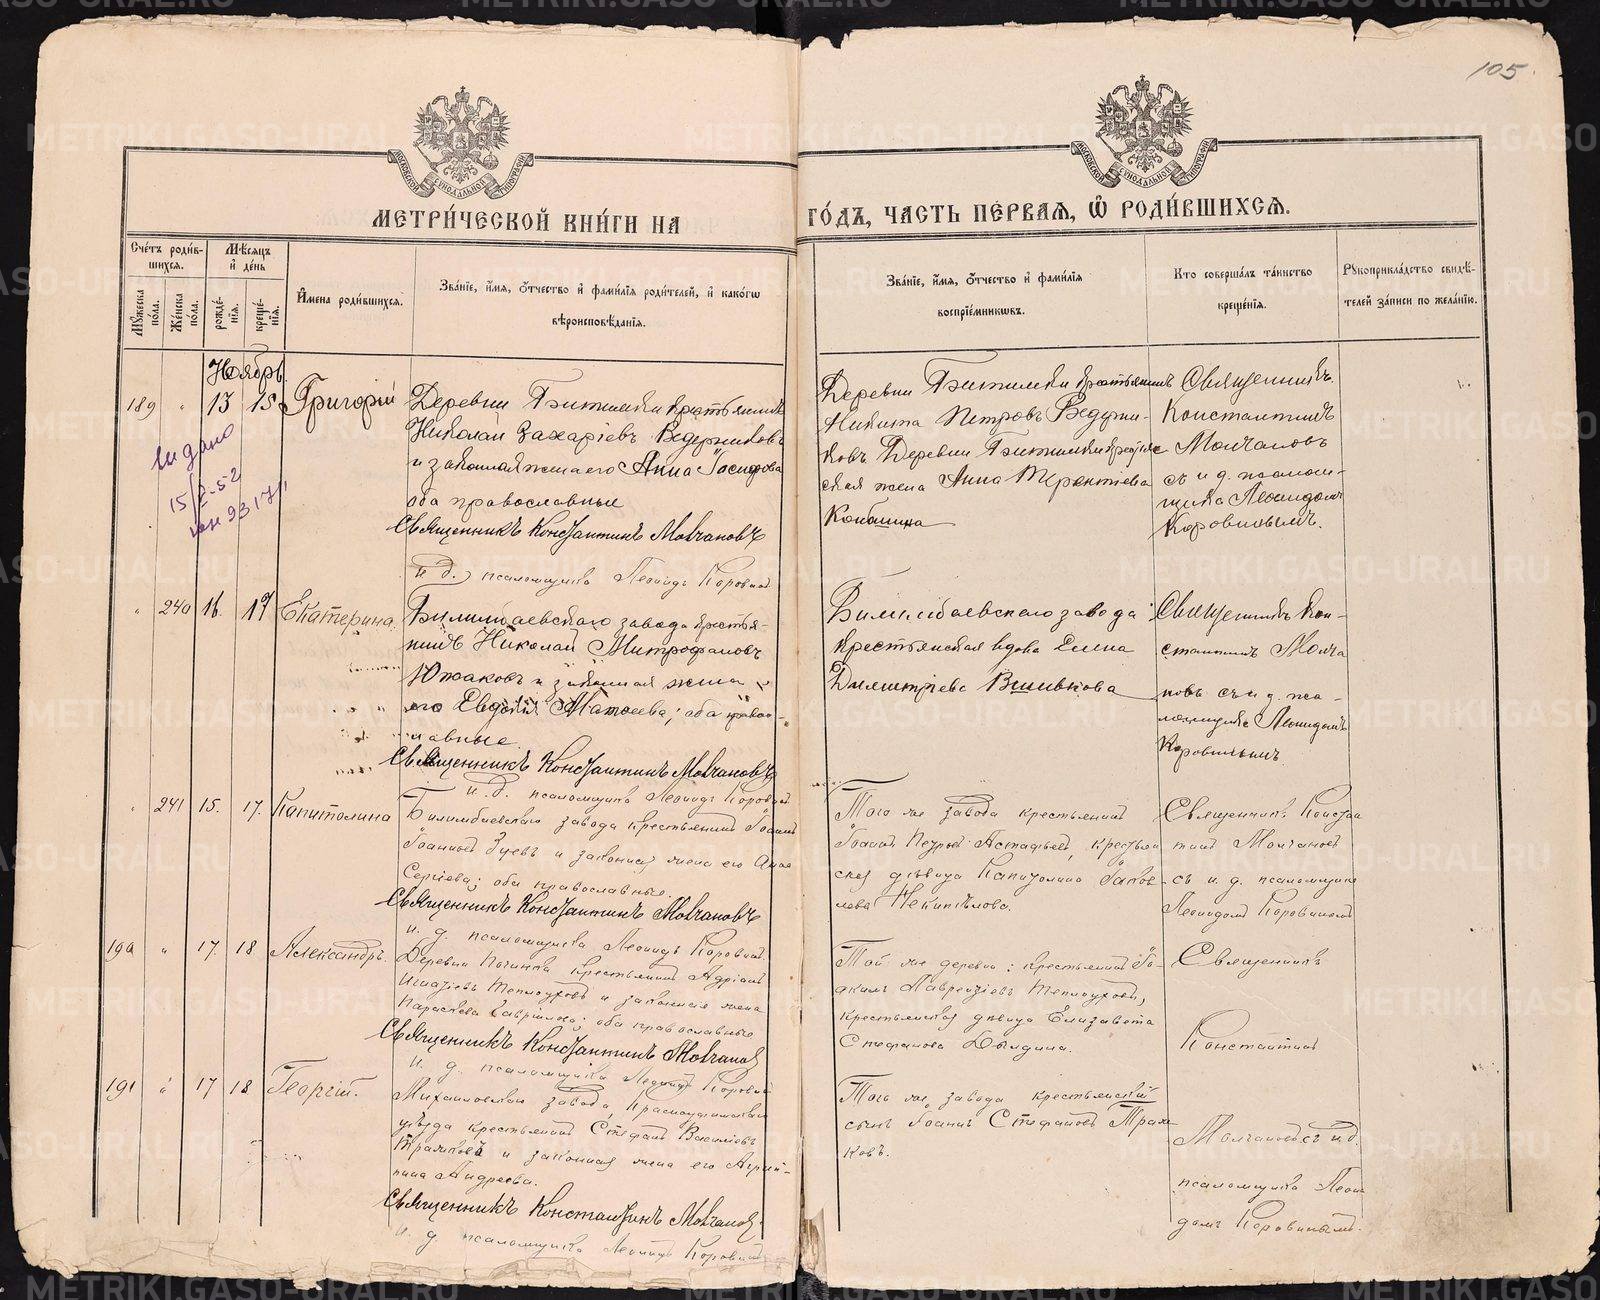 105.
МЕТРИ́ЧЕСКОЙ КНИ́ГИ НА
ГО́ДЪ, ЧАСТЬ ПЕ́РВАЯ, Ѡ҆ РОДИ́ВШИХСЯ.
Сче́тъ роди́в-
шихся.
Мѣ́сяцъ
и҆ де́нь
Мꙋ́жеска по́ла.
Же́нска по́ла.
рожде́-нїя.
креще́-нїя.
И҆мена роди́вшихся.
Зва́нїе, и҆́мя, ѻ҆́тчество и҆ фами́лїя роди́телей, и҆ како́гѡ
вѣроисповѣ́данїя.
Зва́нїе, и҆́мя, ѻ҆́тчество и҆ фами́лїя
воспрїе́мникѡвъ.
Кто соверша́лъ та́инство
креще́нїя.
Рꙋкоприкла́дство свидѣ́-
телей за́писи по жела́нїю.
Ноябрь.
189 " 13 15 Григорій
Деревни Битимки крестьянинъ
Николай Захаріевъ Ведерниковъ
и законная жена его Анна Іосифова
оба православные
Священникъ Константинъ Молчановъ
и. д. псаломщика Леонидъ Коровинъ
Деревни Битимки крестьянинъ
Никита Петровъ Ведерни-
ковъ Деревни Битимки крестьян
ская жена Анна Терентіева
Священникъ
Константинъ
Молчановъ
съ и. д. псалом-
щика Леонидомъ
Коровинымъ.
выдано
15/
" 240 16. 17 Екатерина.
Билимбаевскаго завода крестья-
нинъ Николай Митрофановъ
Южаковъ и законная жена
его Евдокія Матѳеева; оба право-
славные.
Священникъ Константинъ Молчановъ
и. д. псаломщика Леонидъ Коровинъ
Билимбаевскаго завода
крестьянская вдова Елена
Димитріева Вшивкова
Священникъ Кон-
стантинъ Молча
новъ съ и д. пса-
ломщика Леонидомъ
Коровинымъ
" 241 15. 17. Капитолина
Билимбаевскаго завода крестьянинъ Іоаннъ
Іоанновъ Зуевъ и законная жена его Анна
Сергіева; оба православные.
Священникъ Константинъ Молчановъ
и. д. псаломщика Леонидъ Коровинъ.
Того же завода крестьянинъ
Іоаннъ Петровъ Астафьевъ, крестьян
ская дѣвица Капитолина Іаков-
лева Некипѣлова.
Священникъ Констан
тинъ Молчановъ
съ и. д. псаломщика
Леонидомъ Коровинымъ
190 " 17. 18. Александръ.
Деревни Починка крестьянинъ Адріанъ
Игнатіевъ Теплоуховъ и законная жена
Параскева Гавріилова; оба православные
Священникъ Константинъ Молчановъ
и. д. псаломщика Леонидъ Коровинъ
Той же деревни: крестьянинъ Іо-
акимъ Лаврентіевъ Теплоуховъ,
крестьянская дѣвица Елизавета
Стефанова Дылдина.
Священникъ
Константинъ
191 " 17 18 Георгій.
Михайловскаго завода, Красноуфимскаго
уѣзда крестьянинъ Стефанъ Василіевъ
и законная жена его Агрип-
пина Андреева.
Священникъ Константинъ Молчановъ.
и. д. псаломщика Леонидъ Коровинъ
Того же завода крестьянскій
сынъ Іоаннъ Стефановъ
Молчановъ съ и. д.
псаломщика Леони
домъ Коровинымъ.
METRIKI.GASO-URAL.RU